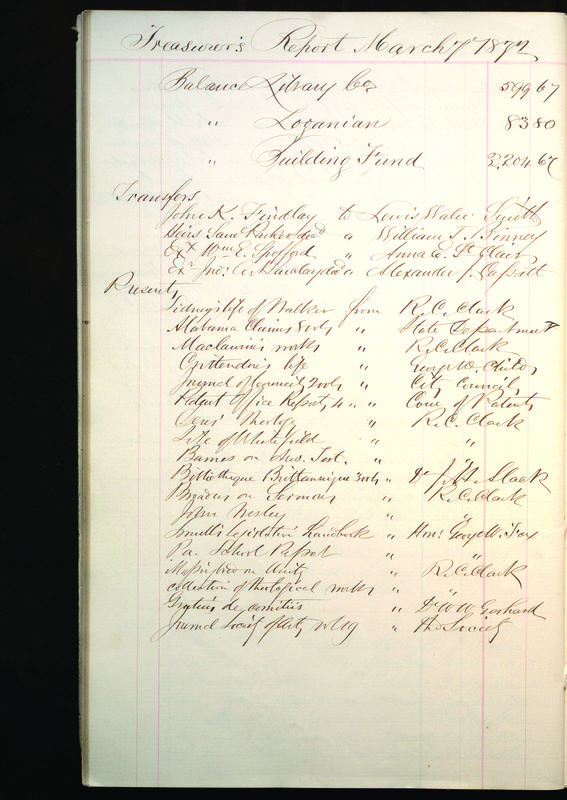 Treasurer's Report March 7th 1872
Balance Library Co 599 67
" Loganian 83 80
" Building Fund 3.204.67
Transfers
John K. Findlay to Lewis Waln Smith
Heirs Saml Parker decd " William S. Pinney
Exx Wm E. Spofford " Anna E. St Clair
Exr Jno: A. Barclay decd " Alexander J. Cassatt
Presents
Sidney's life of Walker from R. C. Clark
Alabama Claims 8 vols " State Department
Maclaurin's works " R. C. Clark
Crittenden's life " George W. Childs
Journal of Councils 2 vols " City Councils
Patent Office Reports 4 " " Com of Patents
Dens' Theology " R. C. Clark
Life of Whitefield " "
Barnes on New Test. " "
Bibliotheque Brittannique vols " Dr J. H. Slack
on Sermons " R. C. Clark
John Wesley " "
Smull's Legislative Handbook " Hon: George W. Fox
Pa. School Report " "
on Unity " R. C. Clark
collection of theological works " "
Grotius de comitiis " Dr W W Gerhard
Journal Society of Arts vol 19 " The Society